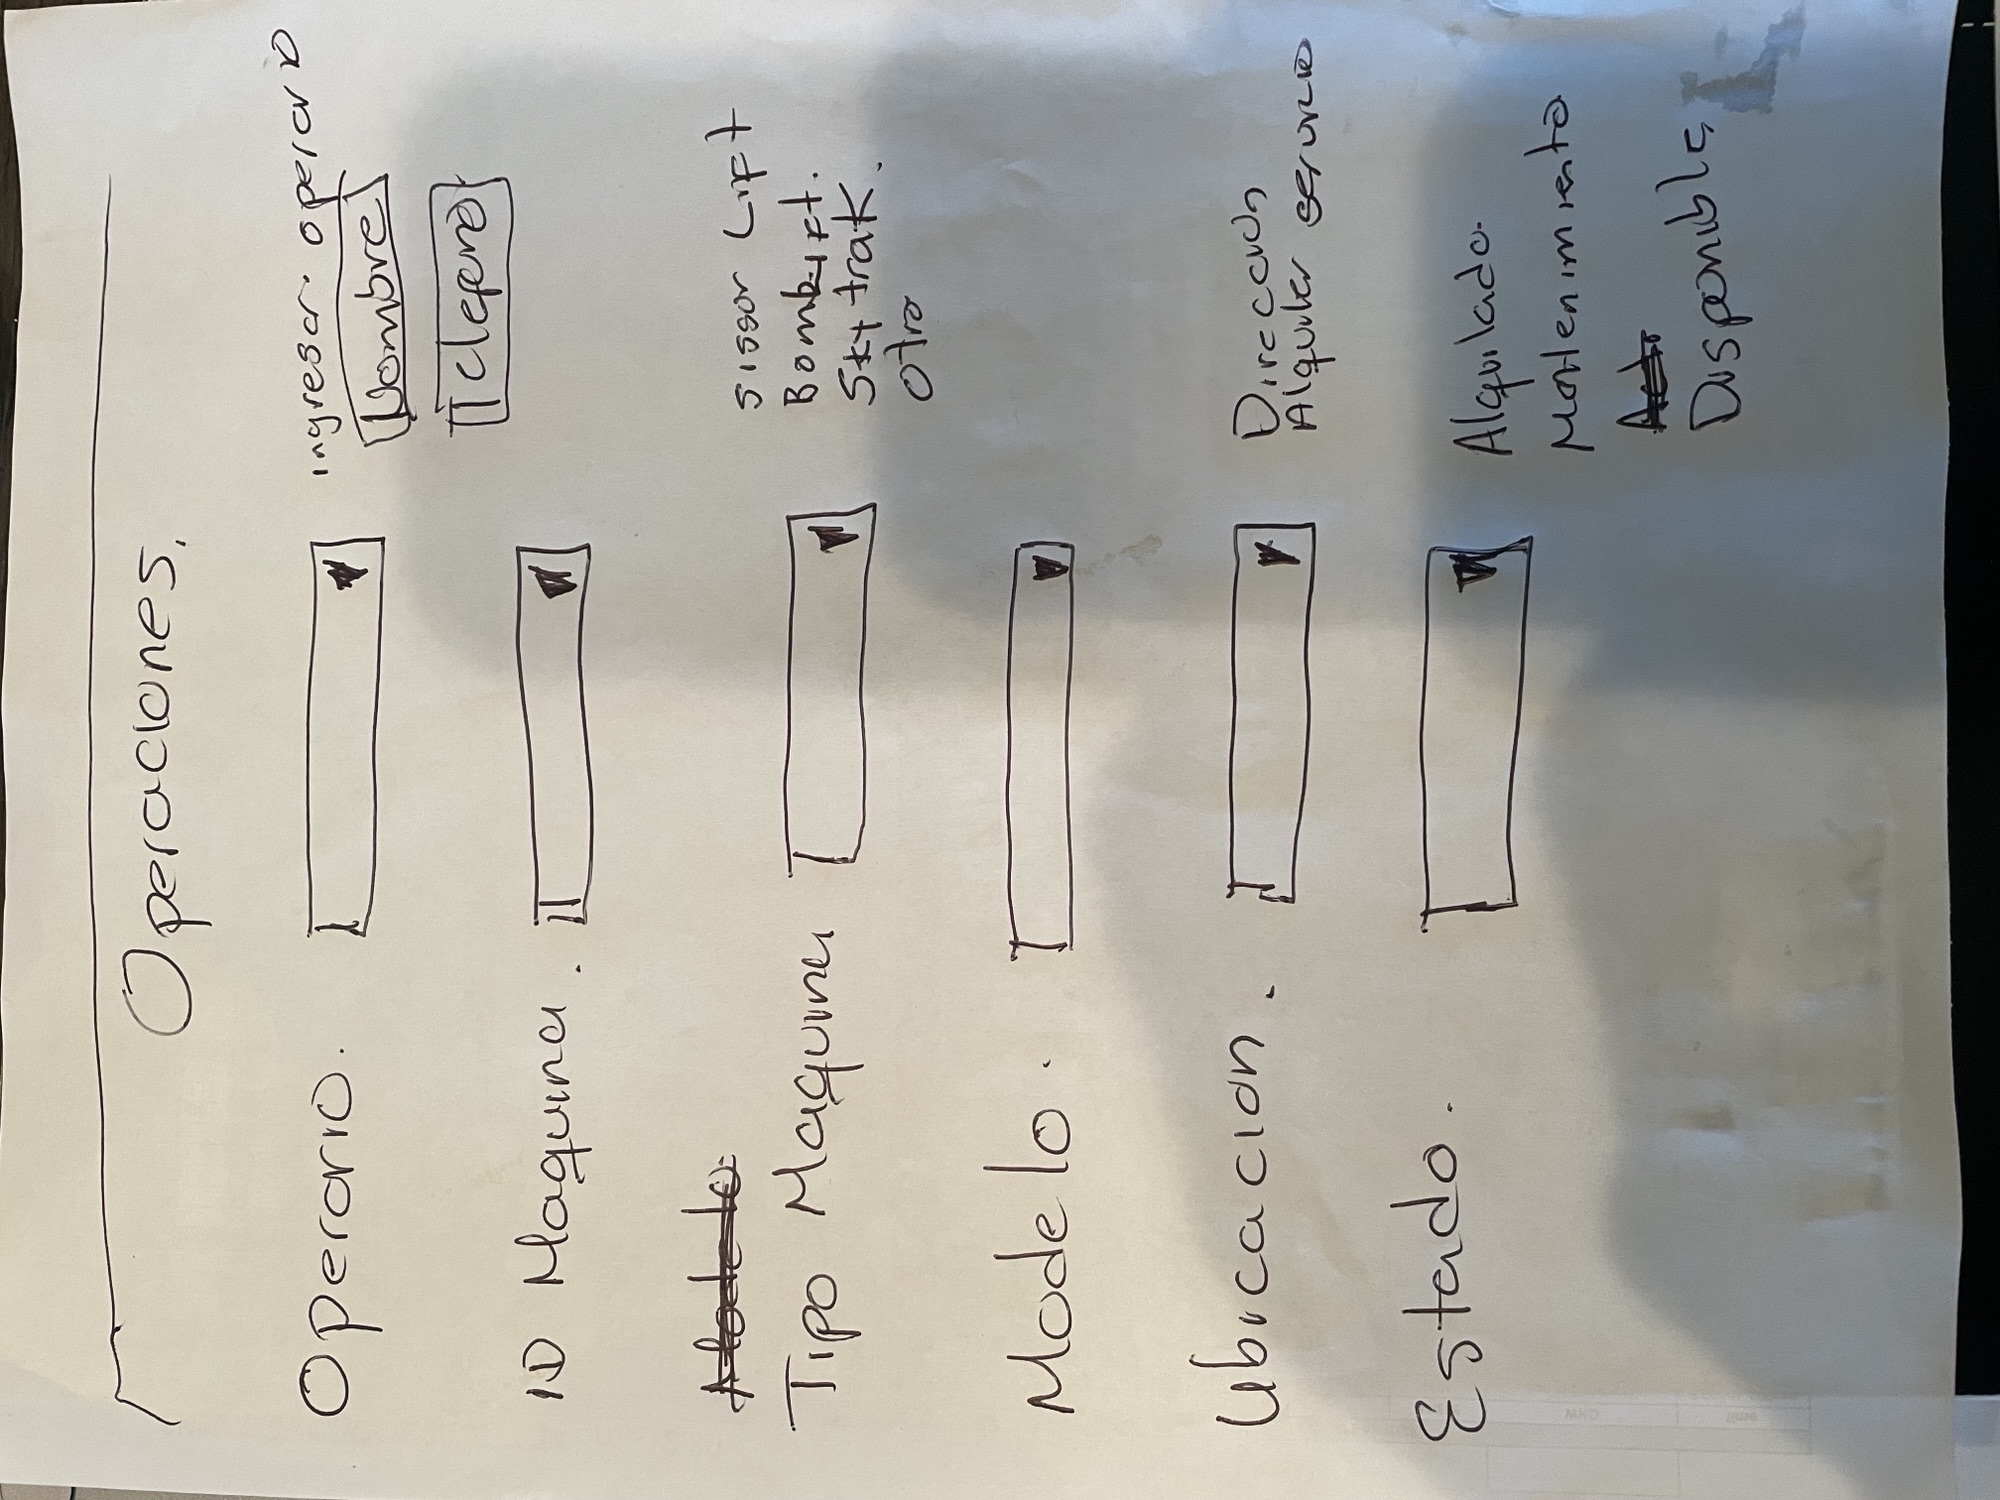 Operaciones.
Operario.
ingresar operario
Nombre
Telefono
ID Maquina.
Modelo
Tipo Maquina
sissor Lift
Bomlift.
Skytrak.
otro
Modelo.
Ubicacion.
Direccion
Alquiler servicio
Estado.
Alquilado.
Disponible